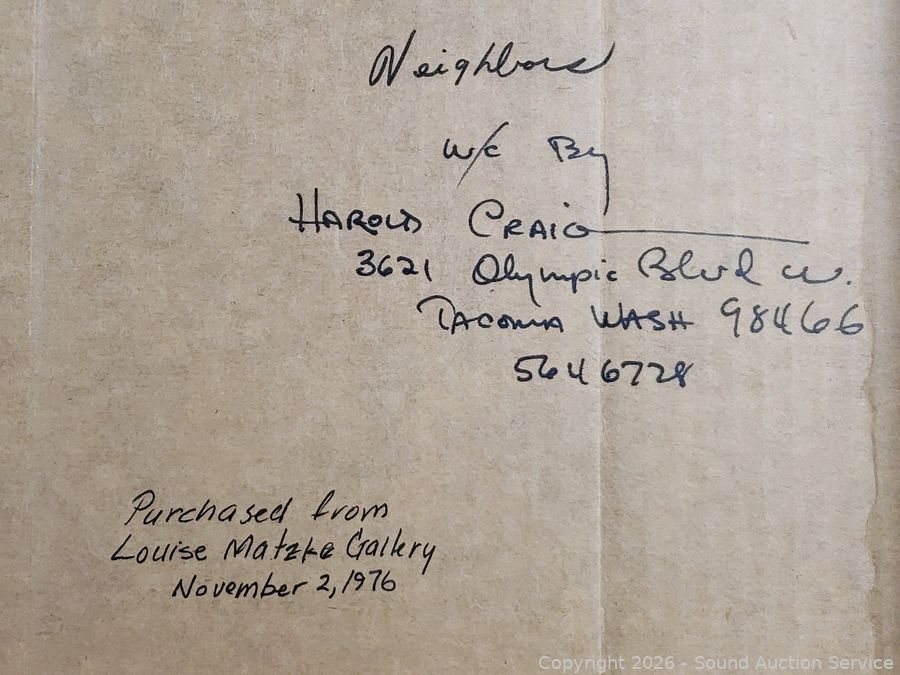 Neighbors
w/c By
HAROLD CRAIG
3621 Olympic Blvd W.
TACOMA WASH 98466
5646728
Purchased from
Louise Matzke Gallery
November 2, 1976
Copyright 2026 - Sound Auction Service